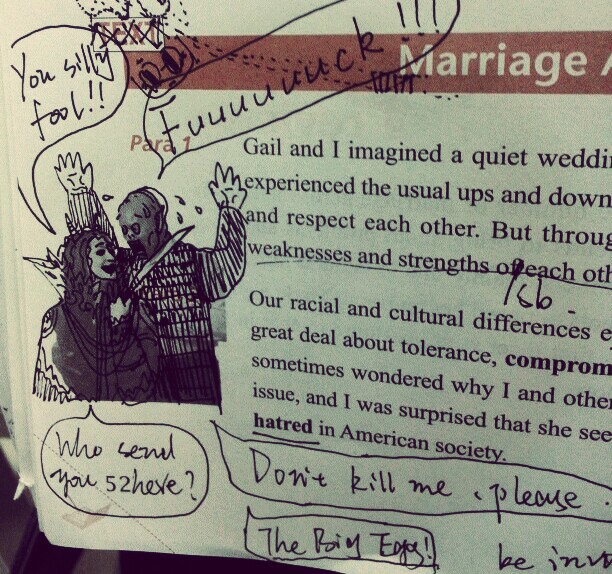 TEXT
You silly
fool!!
Fuuuuuuck!!!
Marriage A
Para 1
Gail and I imagined a quiet weddi
experienced the usual ups and down
and respect each other. But throug
weaknesses and strengths of each oth
/sb.
Our racial and cultural differences e
great deal about tolerance, comprom
sometimes wondered why I and othe
issue, and I was surprised that she see
hatred in American society.
Who send
you 52here?
Don't kill me, please.
The Big Egg!
be inv